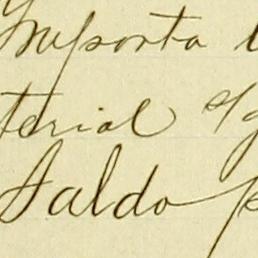 Importa
terial
Saldo